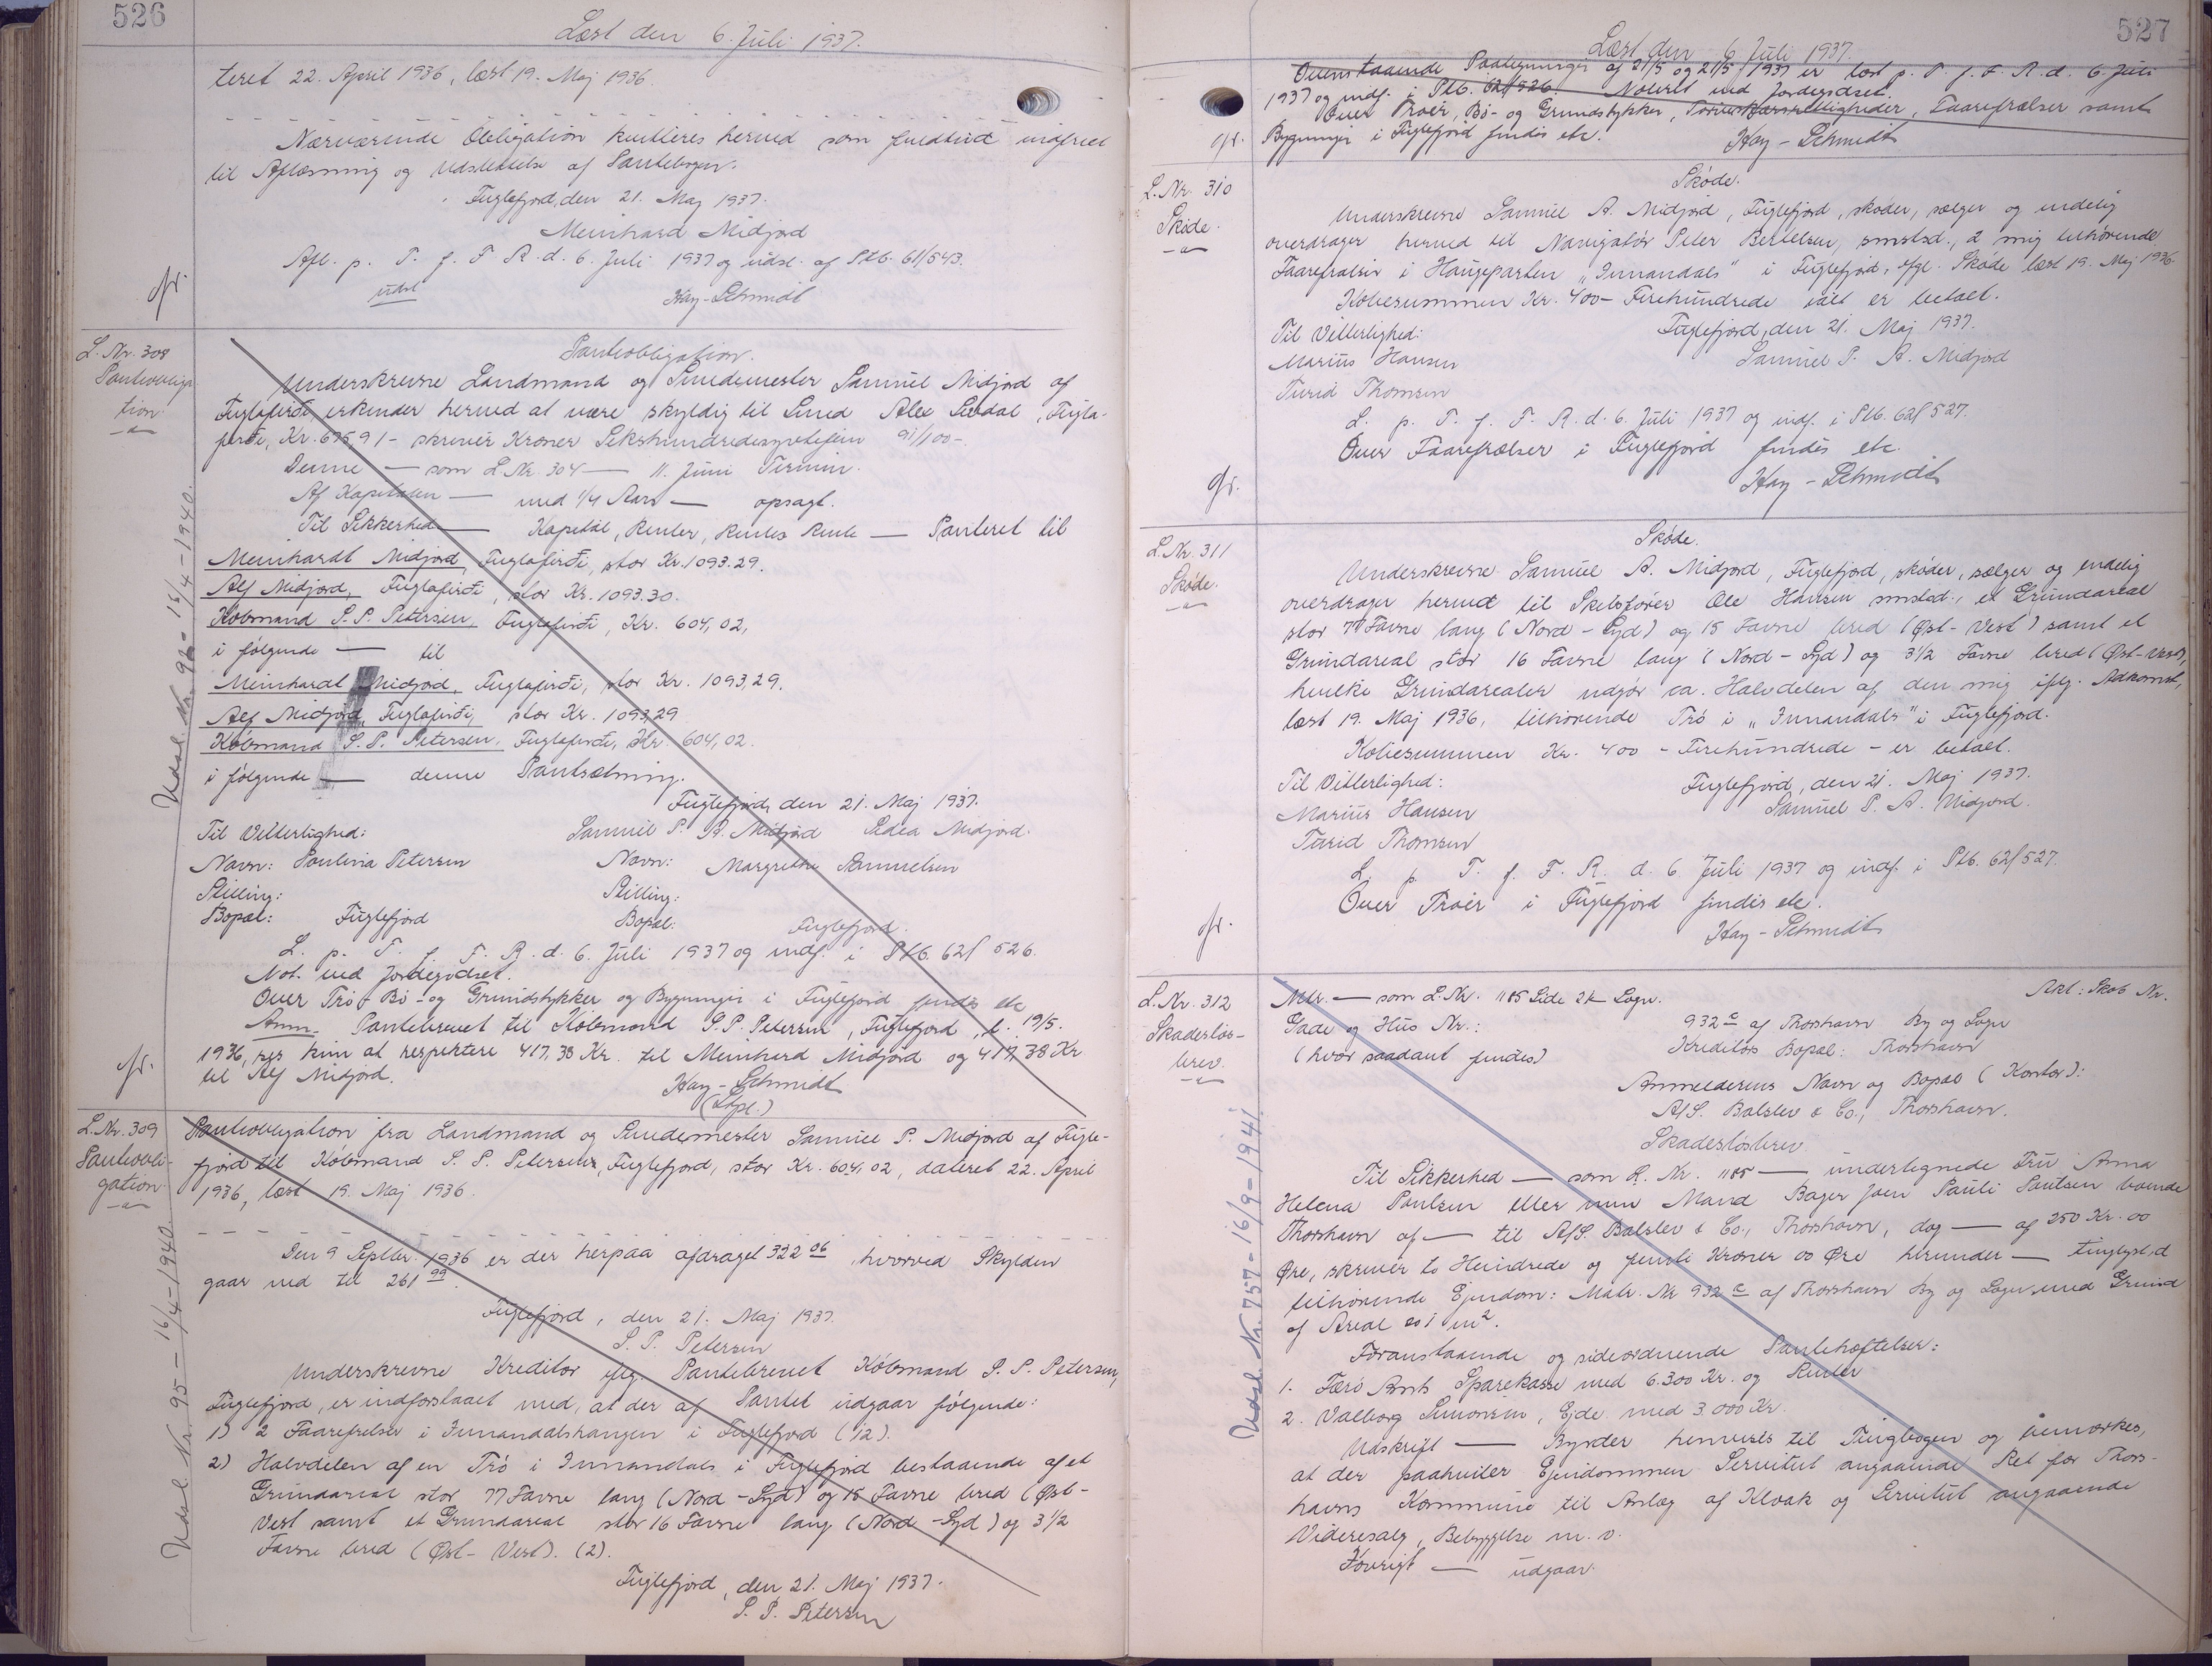 526
Læst den 6. Juli 1937.
teret 22. April 1936, læst 19. Maj 1936.
Nærværende Obligation kvitteres herved som fuldtud indfriet
til Aflæsning og Udslettelse af Pantebogen.
Fuglefjord, den 21. Maj 1937.
Meinhard Midjord
Afl. p. T. f. F. R. d. 6. Juli 1937 og udsl. af Ptb. 61/543.
udsl
Hay-Schmidt
gr.
L. Nr. 308
Pantobliga
tion
Udsl. Nr. 96 - 15/4 - 1940.
Pantobligation.
Underskrevne Landmand og Smedemester Samuel Midjord af
Fuglafirði, erkender herved at være skyldig til Smed Alex Lisdal, Fugla-
firði, Kr. 675,91 - skriver Kroner Sekshundredesyvtifem 91/100 -.
Denne — som L. Nr. 304 — 11. Juni Termin.
Af Kapitalen — med 1/4 Aars — opsagt.
Til Sikkerhed — Kapital, Renter, Rentes Rente — Panteret til
Meinhardt Midjord, Fuglafirði, stor Kr. 1093.29.
Alf Midjord, Fuglafirði, stor Kr. 1093.30.
Købmand S. P. Petersen, Fuglafirði, Kr. 604,02,
i følgende — til
Meinhardt Midjord, Fuglafirði, stor Kr. 1093,29.
Alf Midjord, Fuglafirði, stor Kr. 1093,29
Købmand S. P. Petersen, Fuglafirði, Kr. 604,02.
i følgende — denne Pantsætning.
Fuglefjord, den 21. Maj 1937.
Til Vitterlighed: Samuel P. A. Midjord Midjord.
Navn: Paulina Petersen Navn: Margrethe Samuelsen
Stilling: Stilling:
Bopæl: Fuglefjord Bopæl: Fuglefjord.
L. p. T. f. F. R. d. 6. Juli 1937 og indf. i Ptb. 62/526.
Not. ved Jordegodset.
Over Trø- Bø- og Grundstykker og Bygninger i Fuglefjord findes etc
Anm. Pantebrevet til Købmand S. P. Petersen, Fuglefjord, l. 19/5.
1936, ses kun at respektere 417,38 Kr. til Meinhard Midjord og 417,38 Kr
til Alf Midjord.
Hay-Schmidt
gr.
L. Nr. 309
Pantobli-
gation
Udsl. Nr. 95 - 16/4 - 1940.
Pantobligation fra Landmand og Smedemester Samuel P. Midjord af Fugle-
fjord til Købmand S. P. Petersen, Fuglefjord, stor Kr. 604,02, dateret 22. April
1936, læst 19. Maj 1936.
Den 9 Septbr. 1936 er der herpaa afdraget 322 06 hvorved Skylden
gaar ned til 261 99.
Fuglefjord, den 21. Maj 1937.
S. P. Petersen
Underskrevne Kreditor iflg. Pantebrevet Købmand S. P. Petersen,
Fuglefjord, er indforstaaet med, at der af Pantet udgaar følgende:
1) 2 Faarefrælser i Innandalshaugen i Fuglefjord (12).
2) Halvdelen af en Trø i Innandals i Fuglefjord bestaaende af et
Grundareal stor 77 Favne lang (Nord - Syd) og 15 Favne bred (Øst-
Vest samt et Grundareal stor 16 Favne lang (Nord - Syd) og 3 1/2
Favne bred (Øst - Vest). (2).
Fuglefjord, den 21. Maj 1937.
S. P. Petersen
527
Læst den 6 Juli 1937.
Ovenstaaende Paategninger af 21/5 og 21/5 1937 er læst p. T. f. F. R. d. 6. Juli
1937 og indf. i Ptb. 62/526. Noteret ved Jordegodset.
Over Trøer, Bø- og Grundstykker, Faarefrælser samt
Bygninger i Fuglefjord findes etc.
Hay-Schmidt
gr.
L. Nr. 310
Skøde.
Skøde.
Underskrevne Samuel A. Midjord, Fuglefjord, skøder, sælger og endelig
overdrager herved til Navigatør Peter Bertelsen, smstsd., 2 mig tilhørende
Faarefrælser i Haugeparten "Innandals" i Fuglefjord, ifgl. Skøde læst 19. Maj 1936.
Købesummen Kr. 400 - Firehundrede ialt er betalt.
Til Vitterlighed: Fuglefjord, den 21. Maj 1937.
Marius Hansen Samuel P. A. Midjord
Turid Thomsen
L. p. T. f. F. R. d. 6. Juli 1937 og indf. i Ptb. 62/527.
Over Faarefrælser i Fuglefjord findes etc.
Hay-Schmidt
gr.
L. Nr. 311
Skøde.
Skøde.
Underskrevne Samuel A. Midjord, Fuglefjord, skøder, sælger og endelig
overdrager herved til Skibsfører Ole Hansen smstsd., et Grundareal
stor 77 Favne lang (Nord - Syd) og 15 Favne bred (Øst - Vest) samt et
Grundareal stor 16 Favne lang (Nord - Syd) og 3 1/2 Favne bred (Øst-Vest),
hvilke Grundarealer udgør ca. Halvdelen af den mig iflg. Adkomst,
læst 19. Maj 1936, tilhørende Trø i "Innandals" i Fuglefjord.
Købesummen Kr. 400 - Firehundrede - er betalt.
Til Vitterlighed: Fuglefjord, den 21. Maj 1937.
Marius Hansen Samuel P. A. Midjord.
Turid Thomsen
L. p. T. f. F. R. d. 6. Juli 1937 og indf. i Ptb. 62/527.
Over Trøer i Fuglefjord findes etc.
Hay-Schmidt
gr.
L. Nr. 312
Skadesløs-
brev.
Udsl. Nr. 757 - 16/9 - 1941.
Mtr. — som L. Nr. 1185 Side 2k Sogn. Akt: Skab Nr.
Gade og Hus Nr.: 932 c af Thorshavn By og Sogn
(hvor saadant findes) Kreditors Bopæl: Thorshavn
Anmelderens Navn og Bopæl (Kontor):
A/S. Balslev & Co., Thorshavn.
Skadesløsbrev
Til Sikkerhed — som L. Nr. 1185 — undertegnede Fru Anna
Helena Poulsen eller min Mand Bager Joen Pauli Poulsen boende
Thorshavn af — til A/S. Balslev & Co., Thorshavn, dog — af 250 Kr. 00
Øre, skriver to Hundrede og femti Kroner 00 Øre herunder — tinglyst,
tilhørende Ejendom: Matr. Nr 932 c af Thorshavn By og Sogn med Grund
af Areal 201 m2.
Foranstaaende og sideordnende Pantehæftelser:
1. Færø Amts Sparekasse med 6.300 Kr. og Renter
2. Valborg Simonsen, Ejde med 3.000 Kr.
Udskrift — Byrder henvises til Tingbogen og bemærkes,
at der paahviler Ejendommen Servitut angaaende Ret for Thors-
havns Kommune til Anlæg af Kloak og Servitut angaaende
Videresalg, Bebyggelse m. v.
Iøvrigt — udgaar.